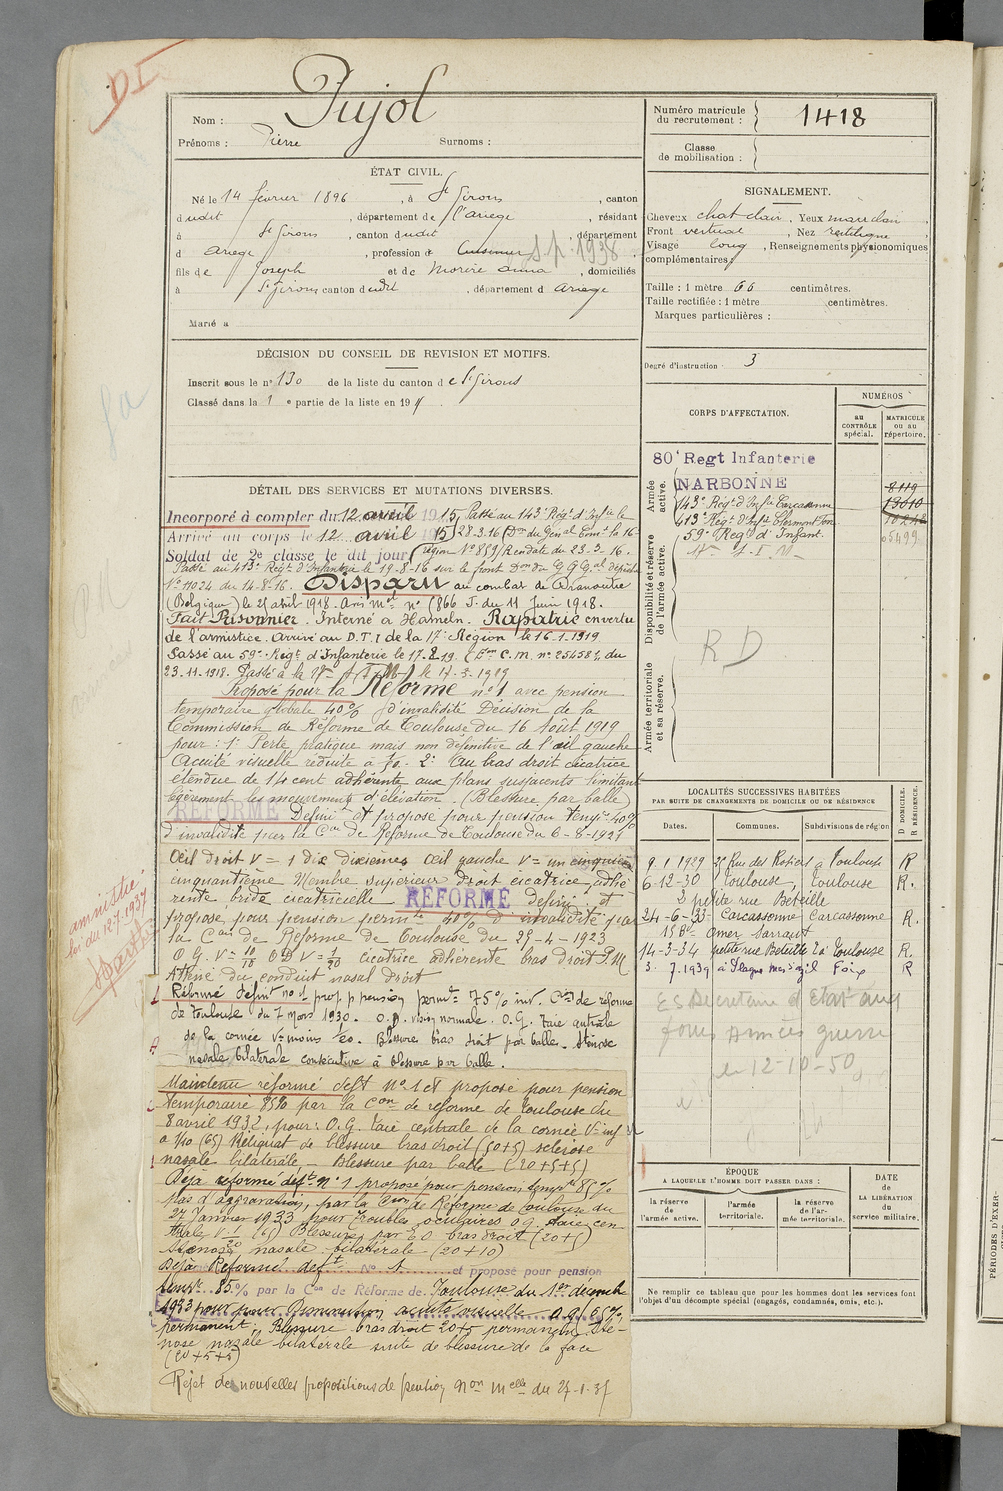 DI
Nom : Pujol
Prénoms : Pierre Surnoms :
ÉTAT CIVIL.
Né le 14 février 1896, à St Girons, canton
dudit, département de l'ariege, résidant
à St Girons, canton dudit, département
d ariege, profession de Cuisinier S.P. 1938
fils de Joseph et de Morère anna, domiciliés
à St Girons canton dudit, département d ariege
Marié à
DÉCISION DU CONSEIL DE REVISION ET MOTIFS.
Inscrit sous le n° 130 de la liste du canton de St Girons
Classé dans la 1e partie de la liste en 19
DÉTAIL DES SERVICES ET MUTATIONS DIVERSES.
Incorporé à compter du 12 avril 1915, Passé au 143e Régt d'Inftie le
Arrivé au corps le 12 avril 1915 28.3.16 (Don du Génal Comt la 16e
Soldat de 2e classe le dit jour région N° 859/R en date du 23.3.16.
Passé au 413e Regt d'Infanterie le 19-8-16 sur le front Don du G.Q.G.
N° 11024 du 14-8-16. Disparu au combat de Dranoutre
(Belgique) le 25 abril 1918. Avis Mel n° 866 J. du 11 Juin 1918.
Fait Prisonnier. Interné à Hameln. Rapatrié en vertu
de l'armistice. arrivé au D.T.I de la 17e Région le 16.1.1919
Passé au 59e Regt d'Infanterie le 17.8.19. C.M. n° 25458 du
23.11.1918. Passé à la 17e le 17.3.1919
Proposé pour la Réforme n° 1 avec pension
temporaire globale 40% d'invalidité Décision de la
Commission de Réforme de Toulouse du 16 Août 1919
pour : 1° Perte pratique mais non définitive de l'œil gauche
Acuité visuelle réduite à 2° Au bras droit cicatrice
étendue de 14 cent adhérente aux plans susjacents limitant
légèrement les mouvements d'élévation. (Blessure par balle)
RÉFORMÉ Définit et proposé pour pension tempre 40%
d'invalidité par la Con de Réforme de Toulouse du 6-8-1921
Œil droit V = 1 dix dixièmes Œil gauche V = un
cinquantième Membre supérieur droit cicatrice adhé-
rente bride cicatricielle RÉFORMÉ définit et
proposé pour pension permte 40% d'invalidité par
la Con de Réforme de Toulouse du 25-4-1923
O G. V= 10/10 OD V= 1/20 cicatrice adhérente bras droit P.M
Athésie du conduit nasal droit
Réformé définit n° 1 prop p pension permte 75% inv. Con de réforme
de Toulouse du 7 Mars 1930. O.D. vision normale. O.G. Taie centrale
de la cornée V= moins 1/20. Blessure bras droit par balle. Sténose
nasale bilatérale consécutive à blessure par balle.
Maintenu réformé deft N° 1 et proposé pour pension
temporaire 85% par la Con de réforme de Toulouse du
8 avril 1932, pour: O.G. taie centrale de la cornée V= inf
à 1/20 (65) Reliquat de blessure bras droit (20+5) sclérose
nasale bilatérale Blessure par balle (20+5+5)
Déjà réformé déft N° 1 proposé pour pension tempre 85%
pas d'aggravation, par la Con de Réforme de Toulouse du
27 Janvier 1933 pour troubles oculaires O.G. taie cen-
trale V. 1/20 (65) Blessure par E.O bras droit (20+5)
Sténose nasale bilatérale (20+10)
Déjà Réformé deft N° 1 et proposé pour pension
tempre 85% par la Con de Réforme de Toulouse du 1er décembre
1933 pour Diminution acuité visuelle O.G. 65%
permanent. Blessure bras droit 20+5 permanent, Sté-
nose nasale bilatérale suite de blessure de la face
(20+5+5)
Rejet de nouvelles propositions de pension Non Melle du 27-1-37
amnistié
loi du 12.7.1937
Numéro matricule
du recrutement : 1418
Classe
de mobilisation :
SIGNALEMENT.
Cheveux chat clair, Yeux mar clair
Front vertical, Nez rectiligne
Visage long, Renseignements physionomiques
complémentaires
Taille : 1 mètre 66 centimètres.
Taille rectifiée : 1 mètre centimètres.
Marques particulières :
Degré d'instruction 3
CORPS D'AFFECTATION.
NUMÉROS
au CONTRÔLE spécial.
MATRICULE ou au répertoire.
Armée active.
80e Regt Infanterie
NARBONNE 8119
143e Régt d'Inftie Carcassonne 13010
413e Régt d'Inft Clermont Fon 10248
59e Regt d'Infant. 05499
Disponibilité et réserve de l'armée active.
RD
Armée territoriale et sa réserve.
LOCALITÉS SUCCESSIVES HABITÉES
PAR SUITE DE CHANGEMENTS DE DOMICILE OU DE RÉSIDENCE
D DOMICILE. R RÉSIDENCE.
Dates. Communes. Subdivisions de région
9.1.1929 Rue des Rosiers à Toulouse R
6-12-30 Toulouse, Toulouse R.
2 petite rue Béteille
24-6-33 Carcassonne Carcassonne R.
Omer Sarraut
14-3-34 petite rue Béteille Toulouse R.
3.7.1939 à Plagne Mas d'azil Foix R
Es Secretaire d'Etat aux
forces armées guerre
le 12-10-50
ÉPOQUE
A LAQUELLE L'HOMME DOIT PASSER DANS :
la réserve de l'armée active.
l'armée territoriale.
la réserve de l'armée territoriale.
DATE de LA LIBÉRATION du service militaire.
Ne remplir ce tableau que pour les hommes dont les services font
l'objet d'un décompte spécial (engagés, condamnés, omis, etc.).
PÉRIODES D'EXER-